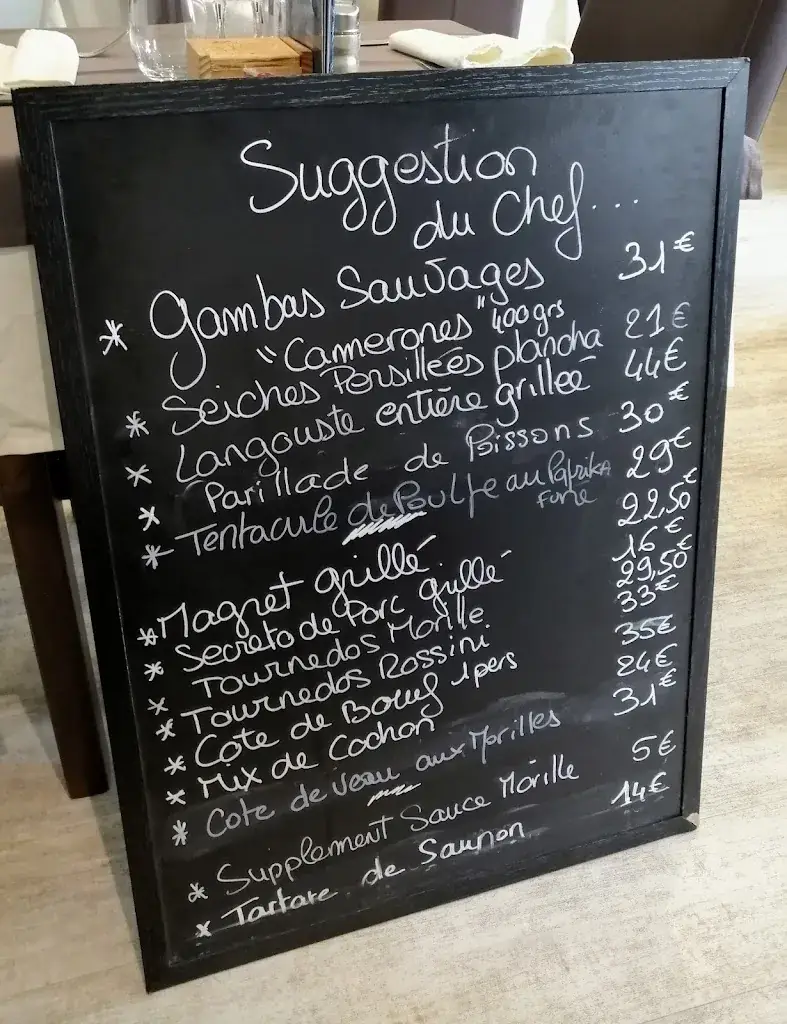 Suggestion
du Chef...
* Gambas Sauvages 31€
"Camerones" 400grs
* Seiches Persillées plancha 21€
* Langouste entière grilleé 44€
* Parillade de Poissons 30€
* Tentacule de Poulpe au Paprika 29€
Fumé
* Magret grillé 22,50€
* Secreto de Porc grillé 16€
* Tournedos Morille 29,50€
* Tournedos Rossini 33€
* Cote de Boeuf 1pers 35€
* Mix de Cochon 24€
* Cote de Veau aux Morilles 31€
* Supplement Sauce Morille 5€
* Tartare de Saumon 14€